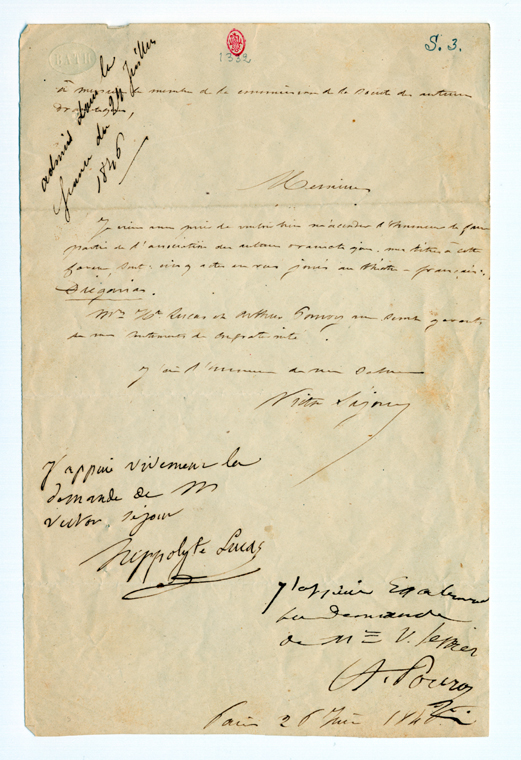 BAAR
1332
S. 3.
admis dans la
séance du 24 juillet
1846
à messieurs les membres de la commission de la société des auteurs
dramatiques,
Messieurs
Je viens vous prier de vouloir bien m'accorder l'honneur de faire
partie de l'association des auteurs dramatiques. mes titres à cette
faveur, sont: cinq actes en vers joués au théâtre-français:
Diégarias.
Mrs Hte Lucas et Arthur Pouroy me sont garants
de mes sentiments de confraternité
J'ai l'honneur de vous saluer
Victor Séjour
J'appuie vivement la
demande de M
victor séjour
hippolyte Lucas
J'appuie Également
la demande
de Mr V. Séjour
A. Pouroy
Paris 26 Juin 1846